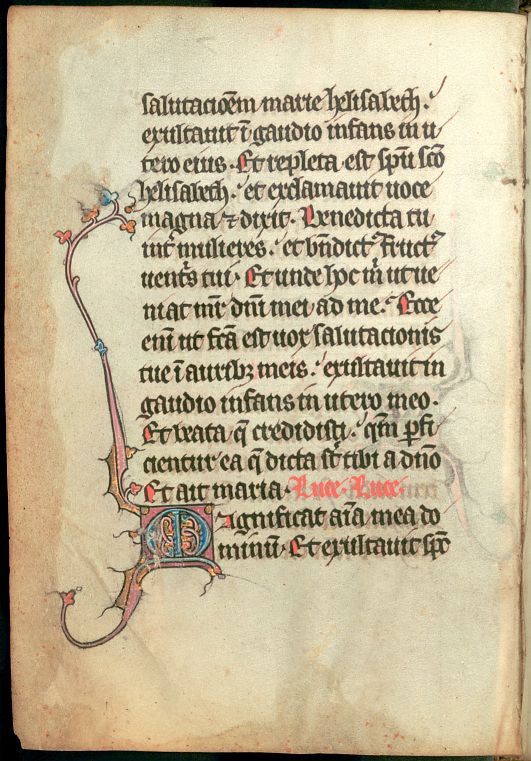 salutacioēm marie helisabeth.
exultauit ī gaudio infans in u
tero eius. Et repleta est spū scō
helisabeth. et exclamauit uoce
magna ⁊ dixit. Benedicta tu
int̄ mulieres. et bn̄dict᷒ fruct᷒
uent̄s tui. Et unde hoc m̄ ut ue
niat mr̄ dn̄i mei ad me. Ecce
enī ut fc̄a est uox salutacionis
tue ī aurib᷒ meis. exultauit in
gaudio infans in utero meo.
Et beata q̄ credidisti. qm̄ ꝑfi
cientur ea q̄ dicta st̄ tibi a dn̄o
Et ait maria. Luce. Luce.
Magnificat aīa mea do
minū. Et exultauit spc̄